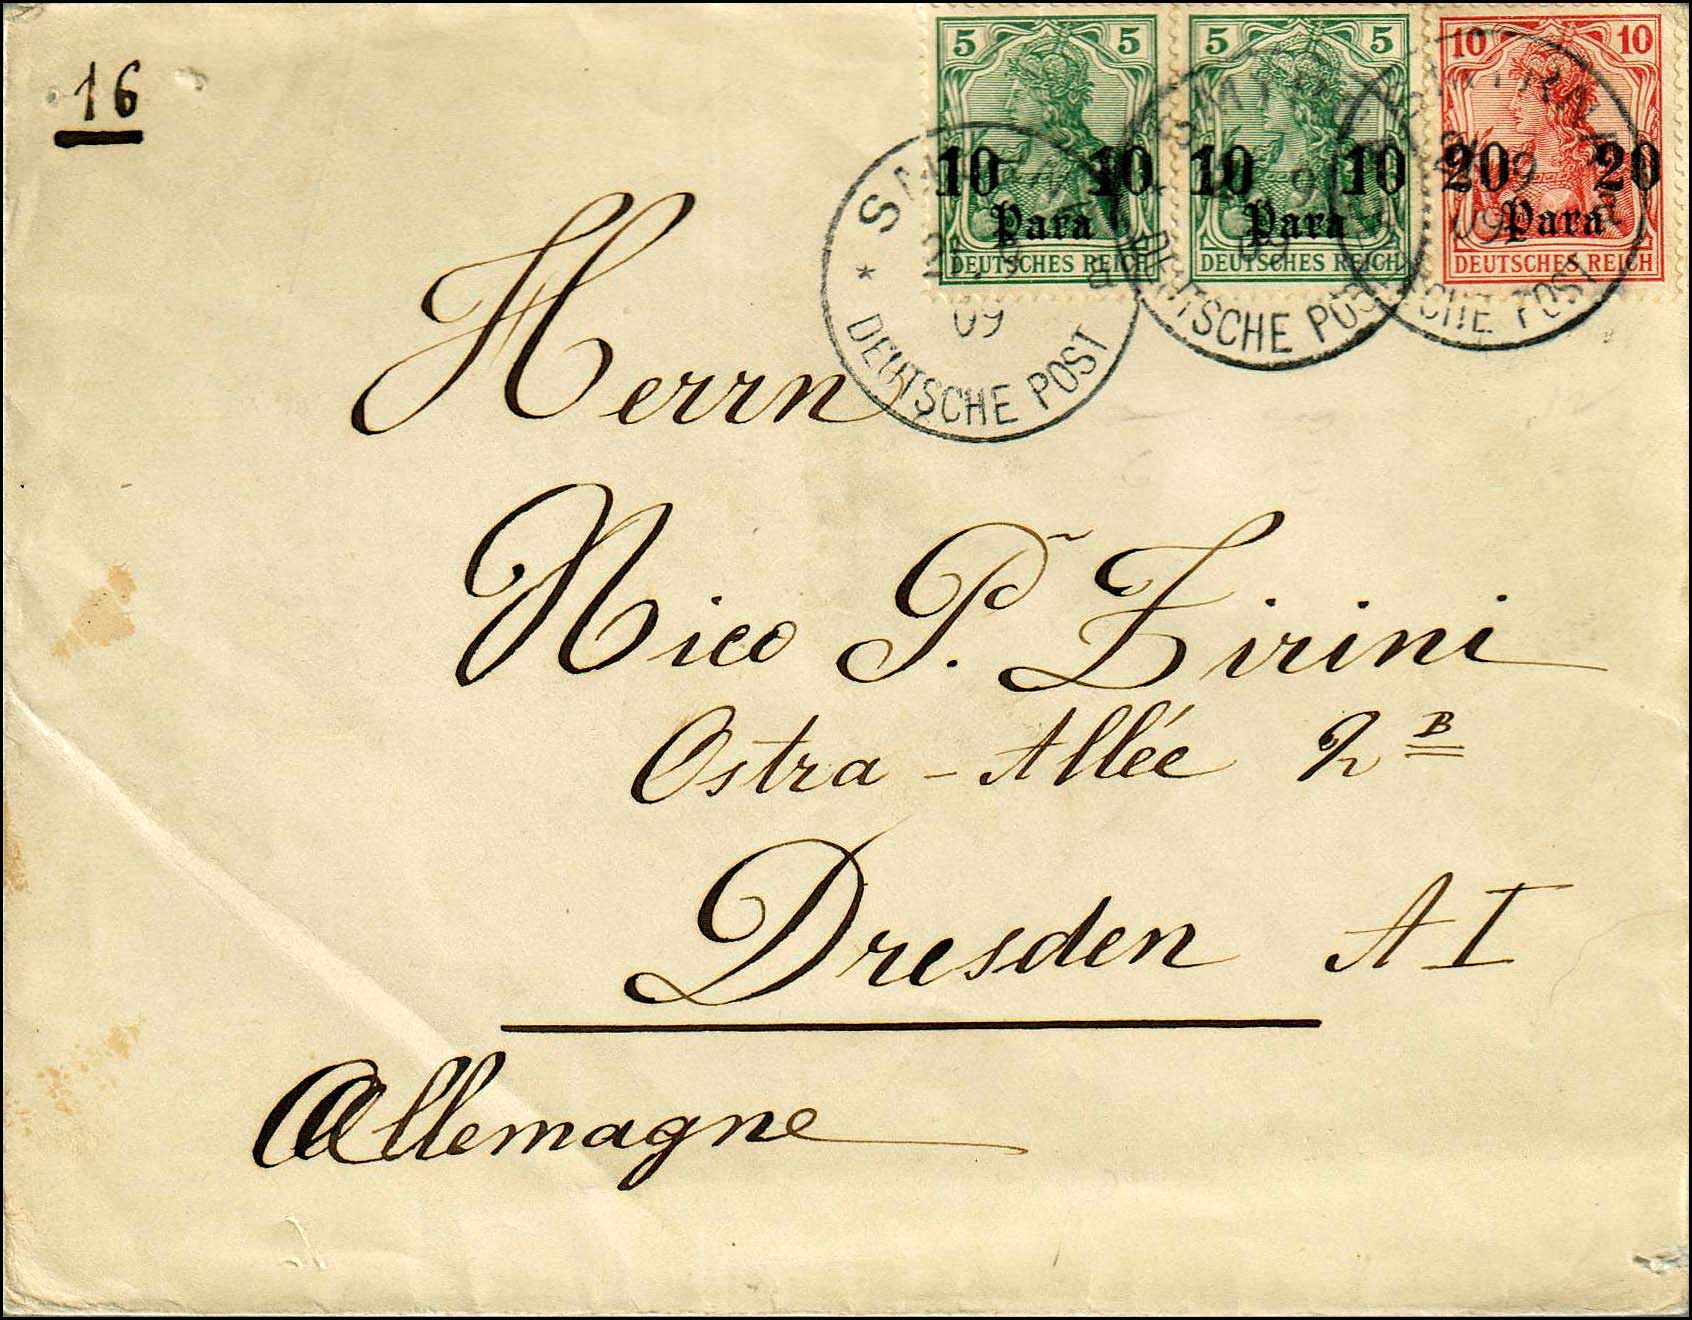 16
5 5 5 5 10 10
10 10 10 10 20 20
Para Para Para
DEUTSCHES REICH DEUTSCHES REICH DEUTSCHES REICH
09
DEUTSCHE POST
DEUTSCHE POST
DEUTSCHE POST
Herrn
Nico P. Zirini
Ostra-Allée 2 B
Dresden A I
Allemagne